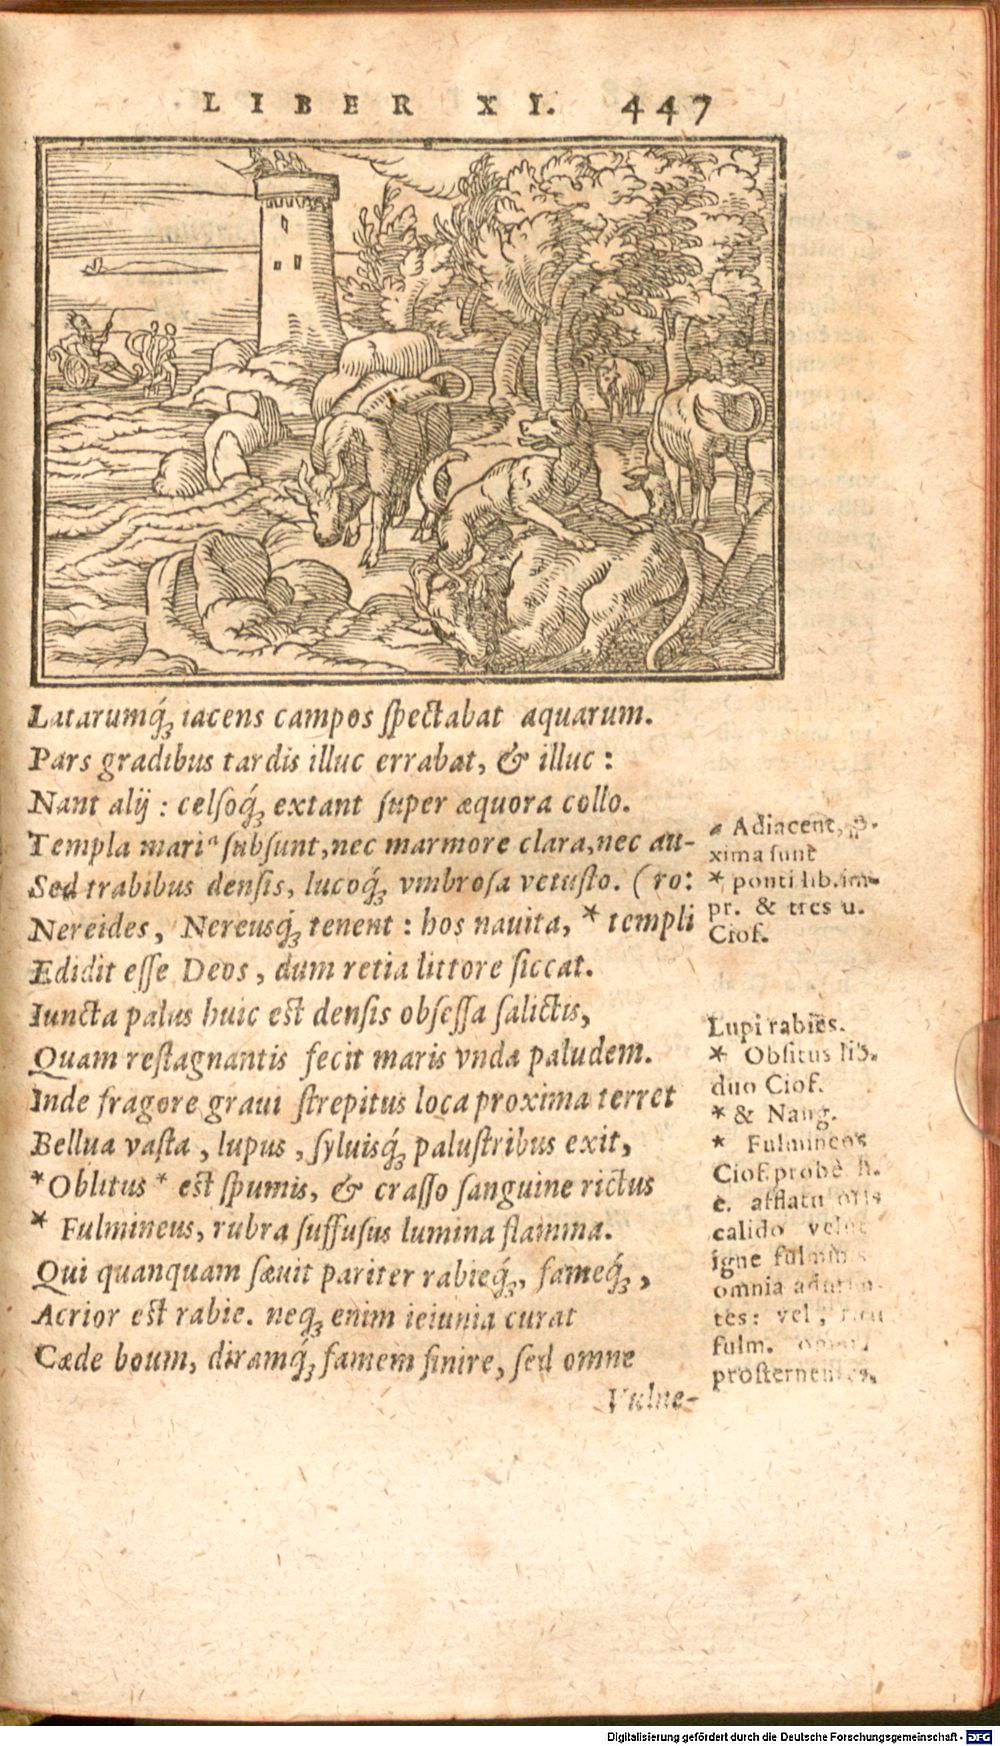 LIBER XI. 447
Latarumq́; iacens campos ſpectabat aquarum.
Pars gradibus tardis illuc errabat, & illuc :
Nant alij : celſoq́; extant ſuper æquora collo.
Templa mari ᵃ ſubſunt, nec marmore clara, nec au-
Sed trabibus denſis, lucoq́; vmbroſa vetuſto. (ro:
Nereides, Nereusq́; tenent : hos nauita, * templi
Edidit eſſe Deos, dum retia littore ſiccat.
Iuncta palus huic est denſis obſeſſa ſalictis,
Quam reſtagnantis fecit maris vnda paludem.
Inde fragore graui ſtrepitus loca proxima terret
Bellua vaſta, lupus, ſyluisq́; paluſtribus exit,
*Oblitus * est ſpumis, & craſſo ſanguine rictus
* Fulmineus, rubra ſuffuſus lumina flamma.
Qui quanquam ſæuit pariter rabieq́;, fameq́;,
Acrior est rabie. neq; enim ieiunia curat
Cæde boum, diramq́; famem finire, ſed omne
Vulne-
a Adiacent, ꝓ-
xima ſunt
* ponti lib. im-
pr. & tres u.
Cioſ.
Lupi rabies.
* Obſitus lib.
duo Cioſ.
* & Naug.
* Fulmineos
Cioſ. probè
e. afflatu oris
calido velut
igne fulminis
omnia
tes: vel,
fulm.
proſternentes.
Digitalisierung gefördert durch die Deutsche Forschungsgemeinschaft - DFG